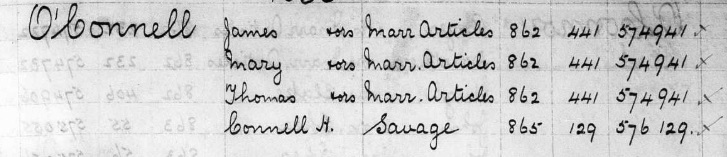 O'Connell James ors Marr Articles 862 441 574941
Mary ors Marr. Articles 862 441 574941
Thomas ors Marr. Articles 862 441 574941
Connell H. Savage 865 129 576129